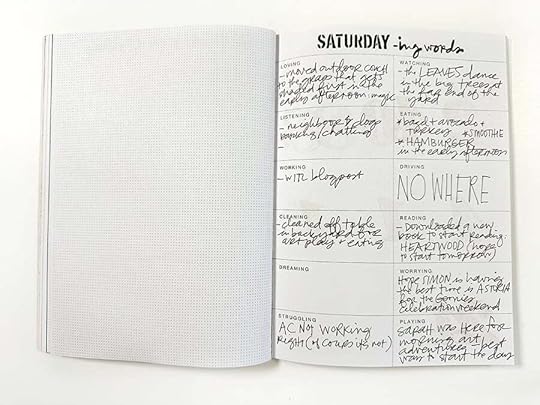 SATURDAY -ing words
LOVING
- moved outdoor couch
to the grass that gets
shaded first in the
early afternoon: magic
WATCHING
- the LEAVES dance
in the big trees at
the far end of the
yard
LISTENING
- neighbors & dogs
barking/chatting
-
EATING
* bagel + avocado +
turkey * SMOOTHIE
* HAMBURGER
in the early afternoon
WORKING
- WITL blogpost
DRIVING
NOWHERE
CLEANING
- cleaned off table
in backyard for
art play + eating
READING
- Downloaded a new
book to start reading:
HEARTWOOD (hope
to start tomorrow)
DREAMING
WORRYING
Hope SIMON is having
the best time in ASTORIA
for the Goonies
celebration weekend
STRUGGLING
AC Not working
Right (of course its not)
PLAYING
Sarah was here for
morning art
adventures - best
way to start the day